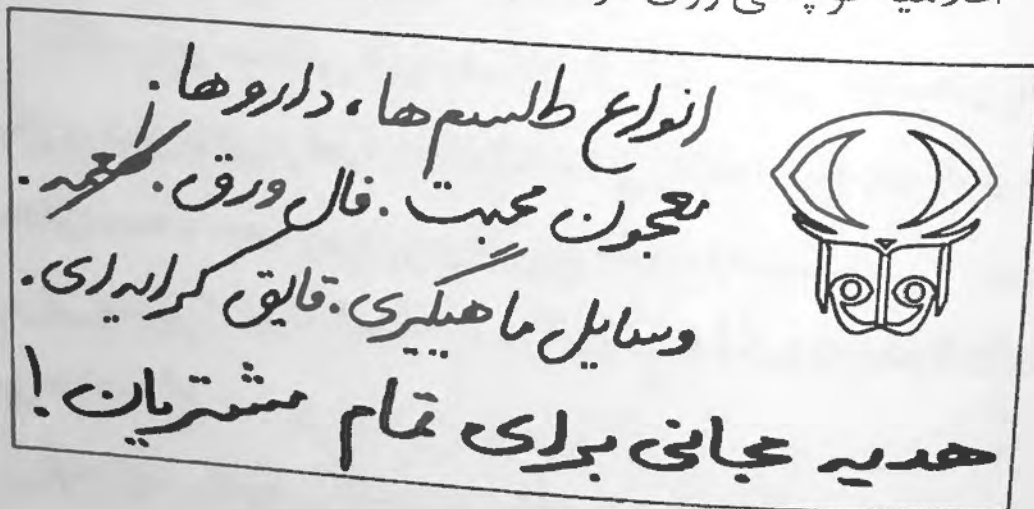 روی
انواع طلسم‌ها، داروها.
معجون محبت. فال ورق. طعمه.
وسایل ماهیگیری. قایق کرایه‌ای.
هدیه مجانی برای تمام مشتریان!